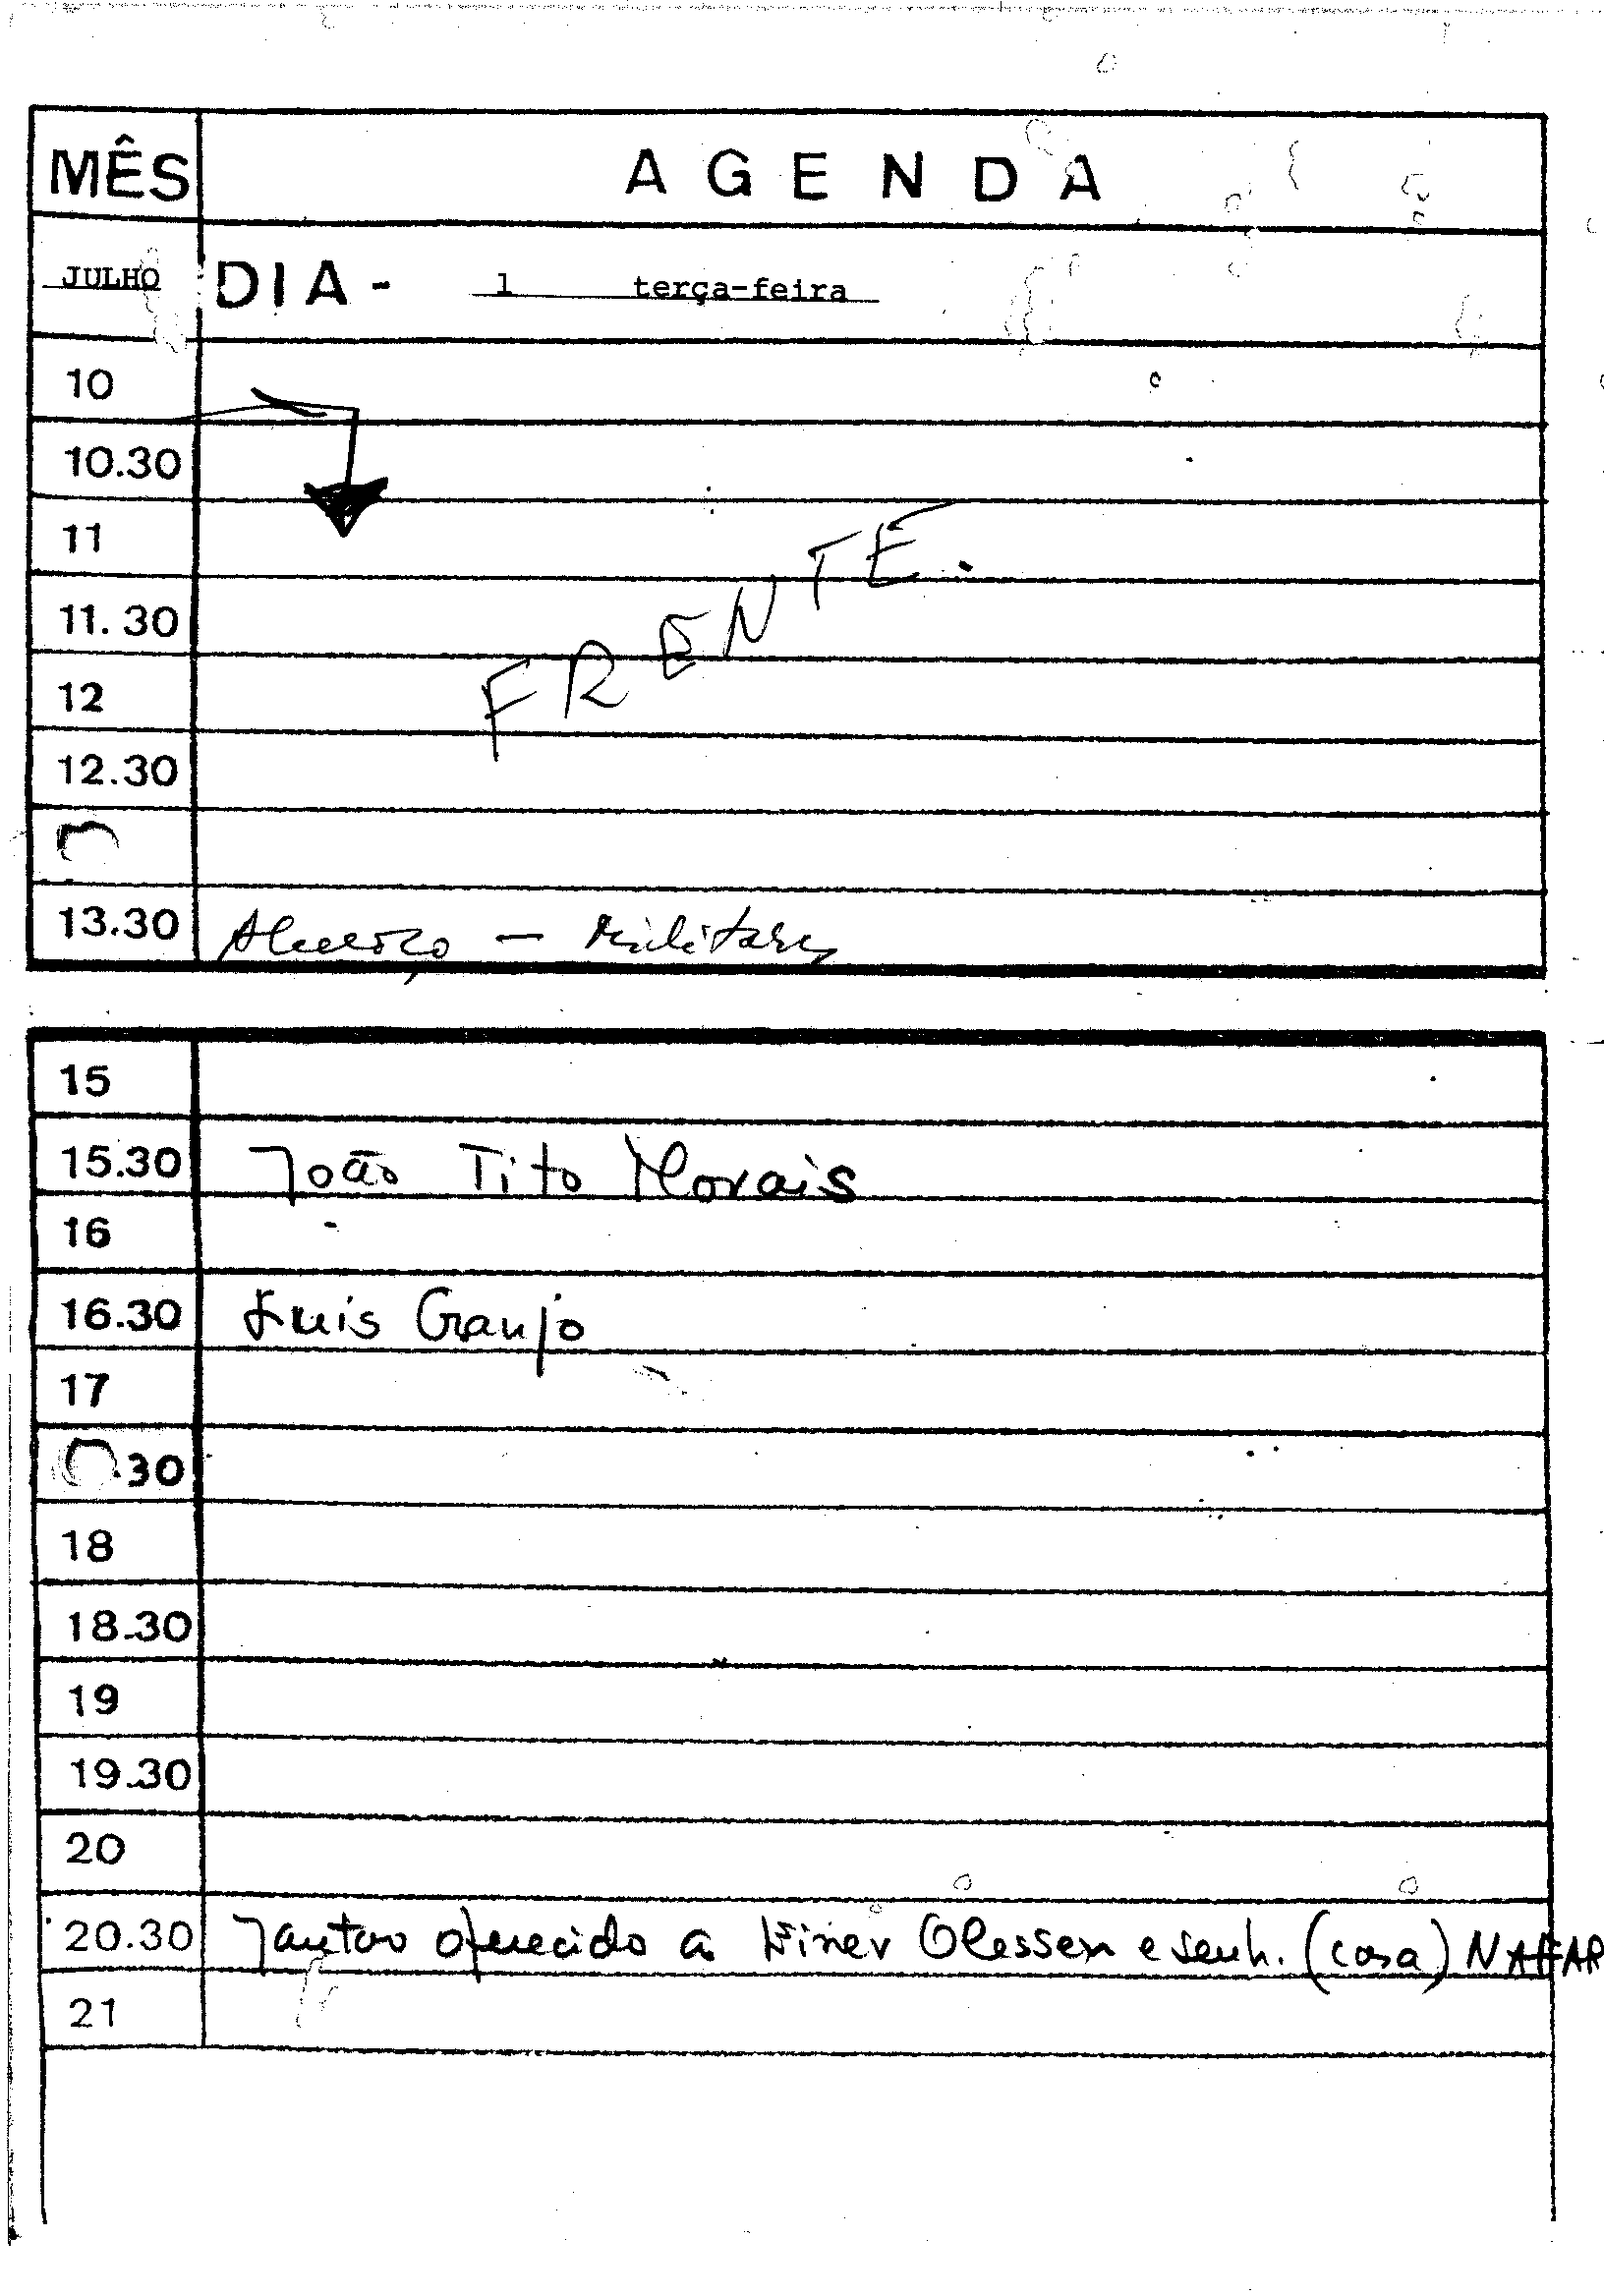 MÊS AGENDA
JULHO DIA - 1 terça-feira
10
10.30
11
11.30
FRENTE.
12
12.30
13.30 Almoço - Militares
15
15.30 João Tito Morais
16
16.30 Luis
17
.30
18
18.30
19
19.30
20
20.30 Jantar oferecido a Einer Olessen e senh. (casa)
21